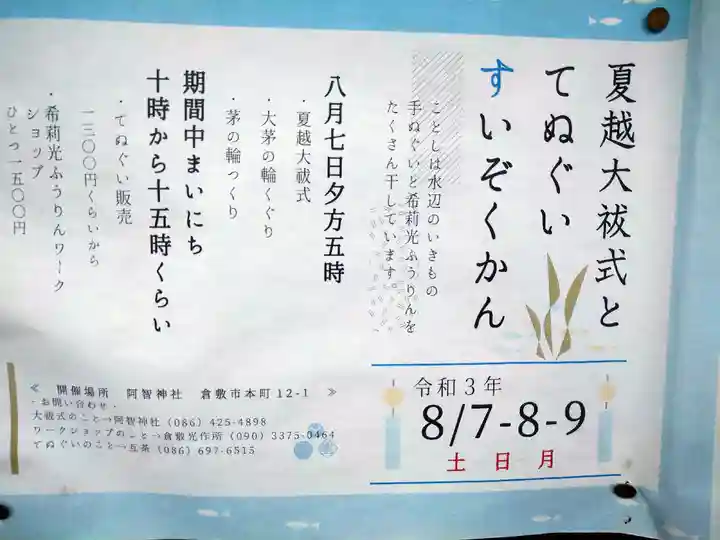 夏越大祓式と
てぬぐい
すいぞくかん
ことしは水辺のいきもの
手ぬぐいと希莉光ふうりんを
たくさん干しています。
八月七日夕方五時
・夏越大祓式
・大茅の輪くぐり
・茅の輪つくり
期間中まいにち
十時から十五時くらい
・てぬぐい販売
一二〇〇円くらいから
・希莉光ふうりんワーク
ショップ
ひとつ一五〇〇円
令和3年
8/7-8-9
土 日 月
≪ 開催場所 阿智神社 倉敷市本町12-1 ≫
・お問い合わせ・
大祓式のこと→阿智神社(086)425-4898
ワークショップのこと→倉敷光作所(090)3375-0464
てぬぐいのこと→互茶(086)697-6515